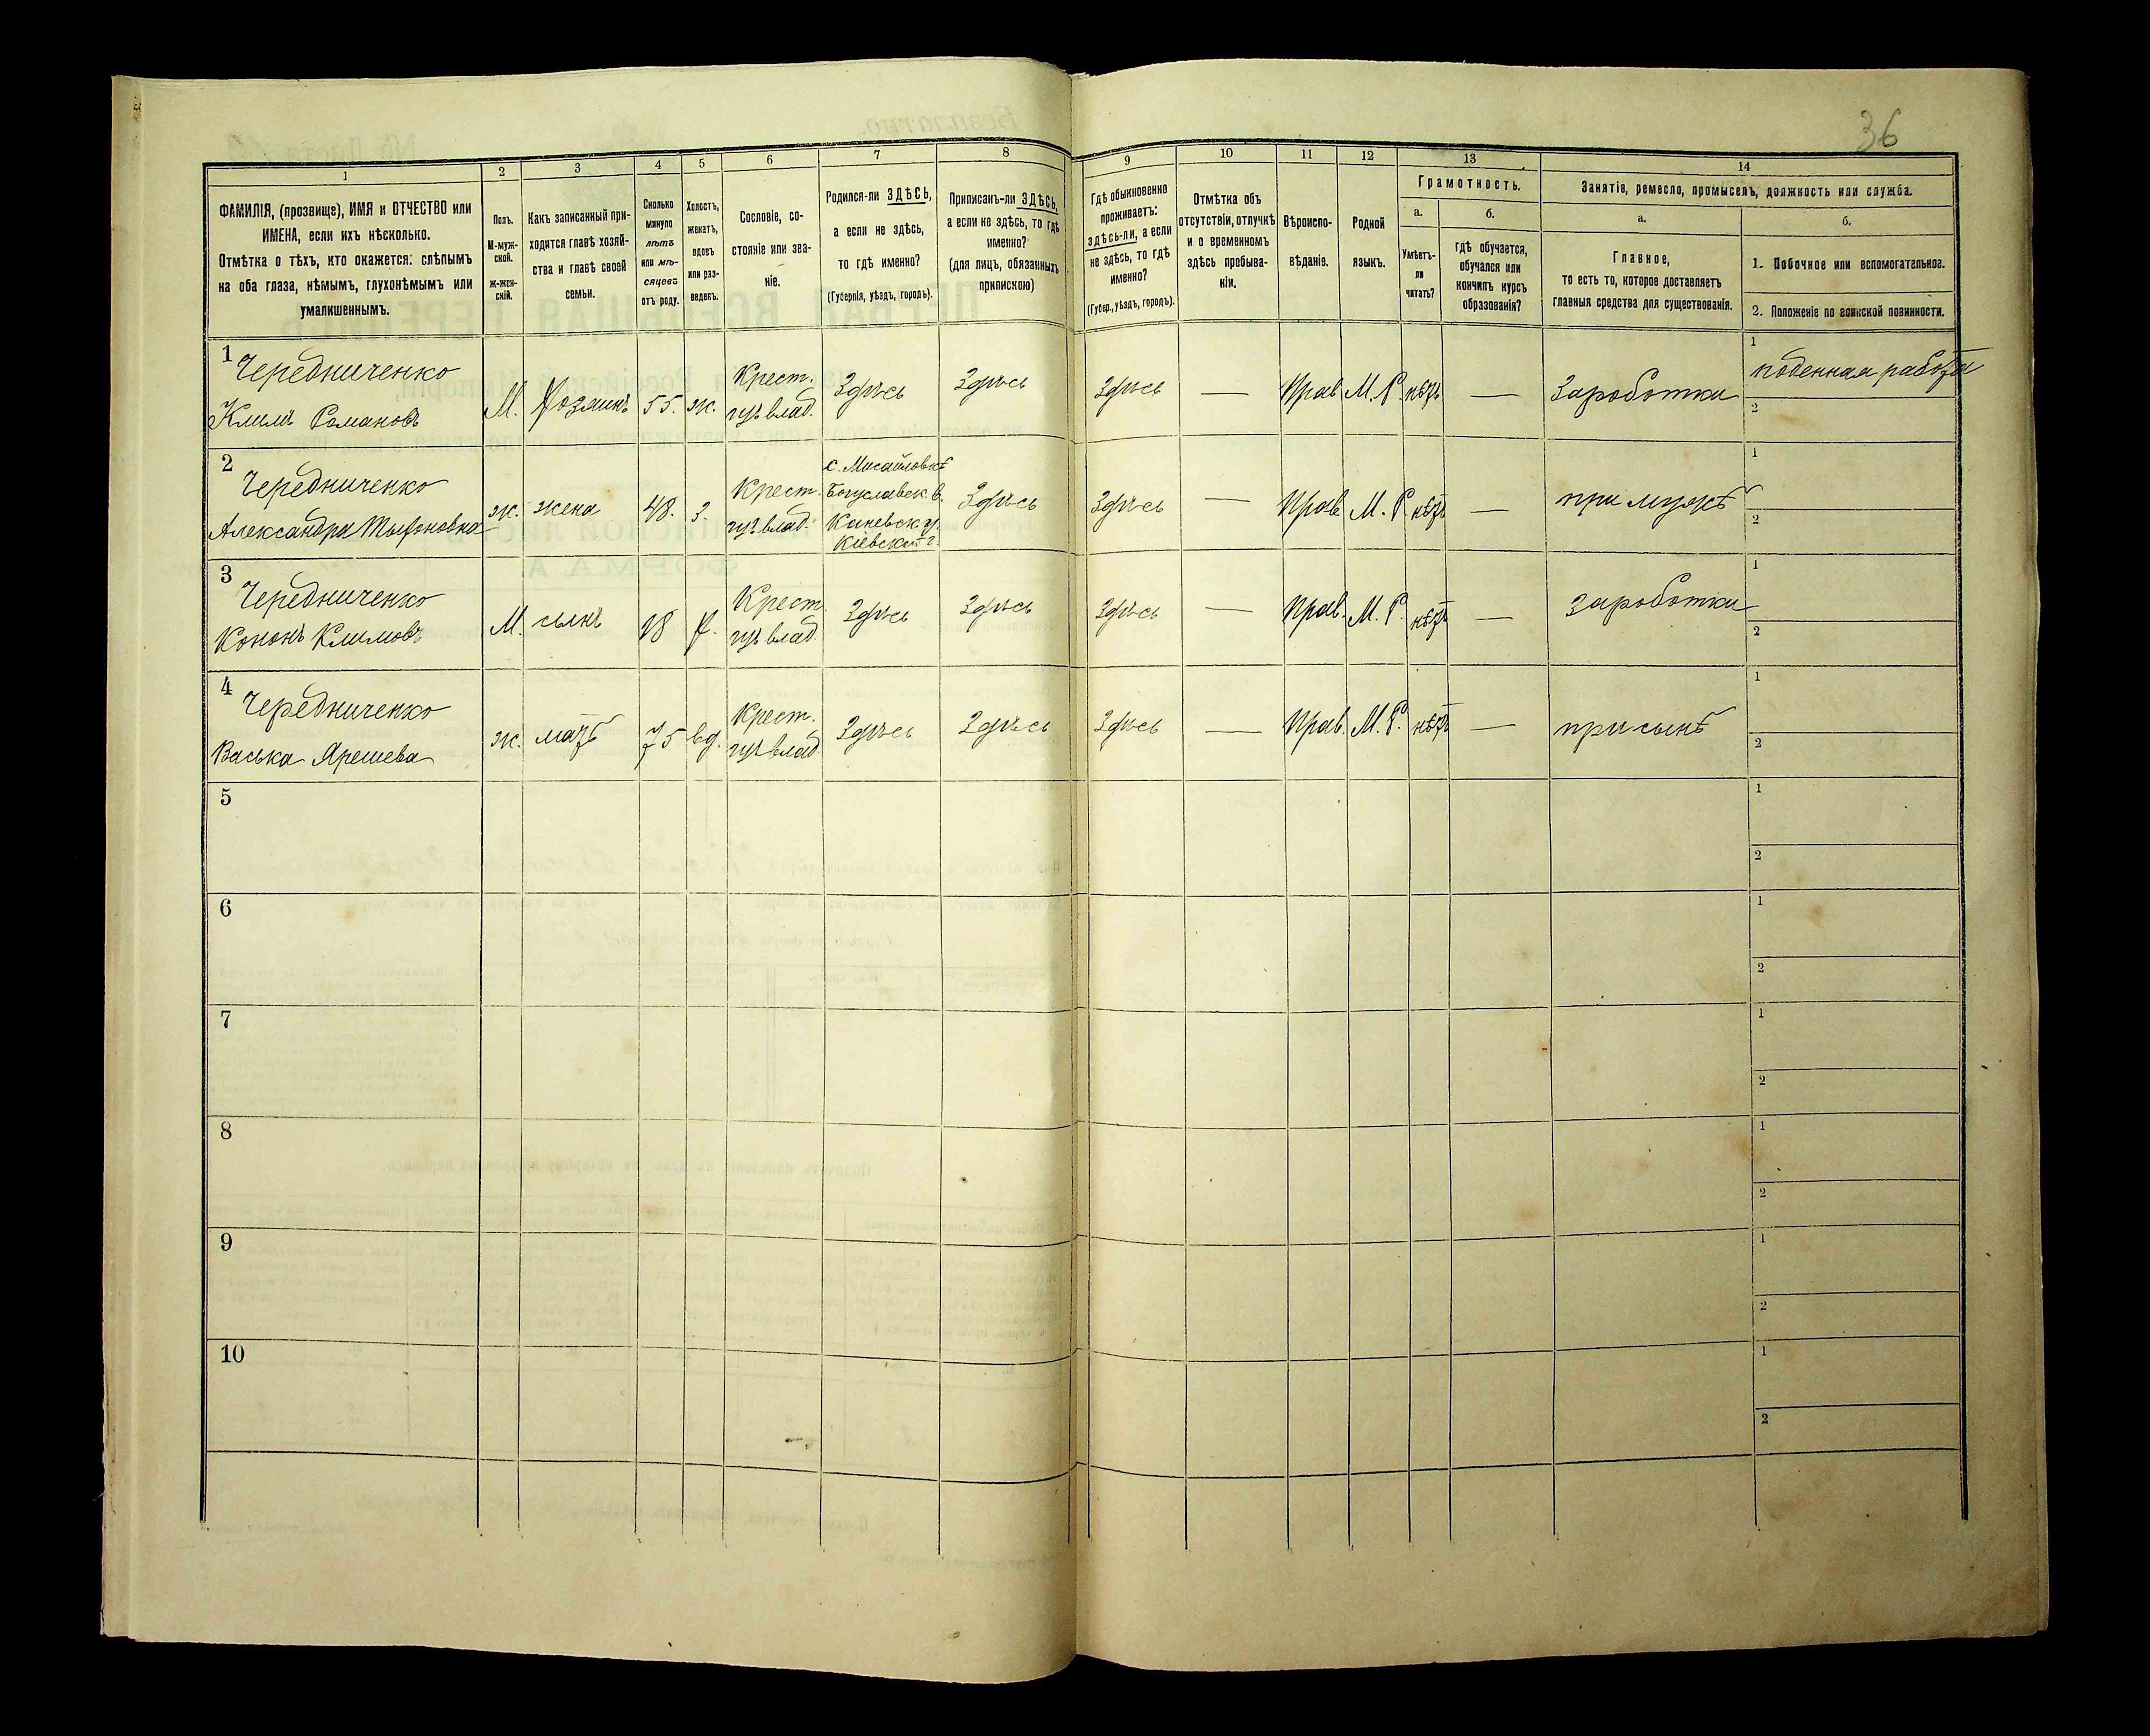 36
1
2
3
4
5
6
7
8
9
10
11
12
13
14
ФАМИЛІЯ, (прозвище), ИМЯ и ОТЧЕСТВО или
ИМЕНА, если ихъ нѣсколько.
Отмѣтка о тѣхъ, кто окажется: слѣпымъ
на оба глаза, нѣмымъ, глухонѣмымъ или
умалишеннымъ.
Полъ.
М-муж-
ской.
Ж-жен-
скій.
Какъ записанный при-
ходится главѣ хозяй-
ства и главѣ своей
семьи.
Сколько
минуло
лѣтъ
или мѣ-
сяцевъ
отъ роду.
Холостъ,
женатъ,
вдовъ
или раз-
веденъ.
Сословіе, со-
стояніе или зва-
ніе.
Родился-ли ЗДѢСЬ,
а если не здѣсь,
то гдѣ именно?
(Губернія, уѣздъ, городъ).
Приписанъ-ли ЗДѢСЬ,
а если не здѣсь, то гдѣ
именно?
(для лицъ, обязанныхъ
припискою)
Гдѣ обыкновенно
проживаетъ:
здѣсь-ли, а если
не здѣсь, то гдѣ
именно?
(Губер., уѣздъ, городъ).
Отмѣтка объ
отсутствіи, отлучкѣ
и о временномъ
здѣсь пребыва-
ніи.
Вѣроиспо-
вѣданіе.
Родной
языкъ.
Грамотность.
а.
Умѣетъ-
ли
читать?
б.
гдѣ обучается,
обучался или
кончилъ курсъ
образованія?
Занятіе, ремесло, промыселъ, должность или служба.
а.
Главное,
то есть то, которое доставляетъ
главныя средства для существованія.
б.
1. Побочное или вспомогательное.
2. Положеніе по воинской повинности.
1
Чередниченко
Климъ Романовъ
М. Хозяинъ 55. ж.
Крест.
изъ влад.
Здѣсь Здѣсь Здѣсь — Прав. М. Р. нѣтъ — Заработки
1 поденная работа
2
2
Чередниченко
Александра
ж. жена 48. з
Крест.
изъ влад.
Богуславск. в.
Каневск. у.
Кіевской г.
Здѣсь Здѣсь — Прав. М. Р. нѣтъ — при мужѣ
1
2
3
Чередниченко
Кононъ Климовъ
М. сынъ 18 х.
Крест.
изъ влад.
Здѣсь Здѣсь Здѣсь — Прав. М. Р. нѣтъ — Зароботки
1
2
4
Чередниченко
Васька
ж. мать 75 вд.
Крест.
изъ влад.
Здѣсь Здѣсь Здѣсь — Прав. М. Р. нѣтъ — при сынѣ
1
2
5
1
2
6
1
2
7
1
2
8
1
2
9
1
2
10
1
2